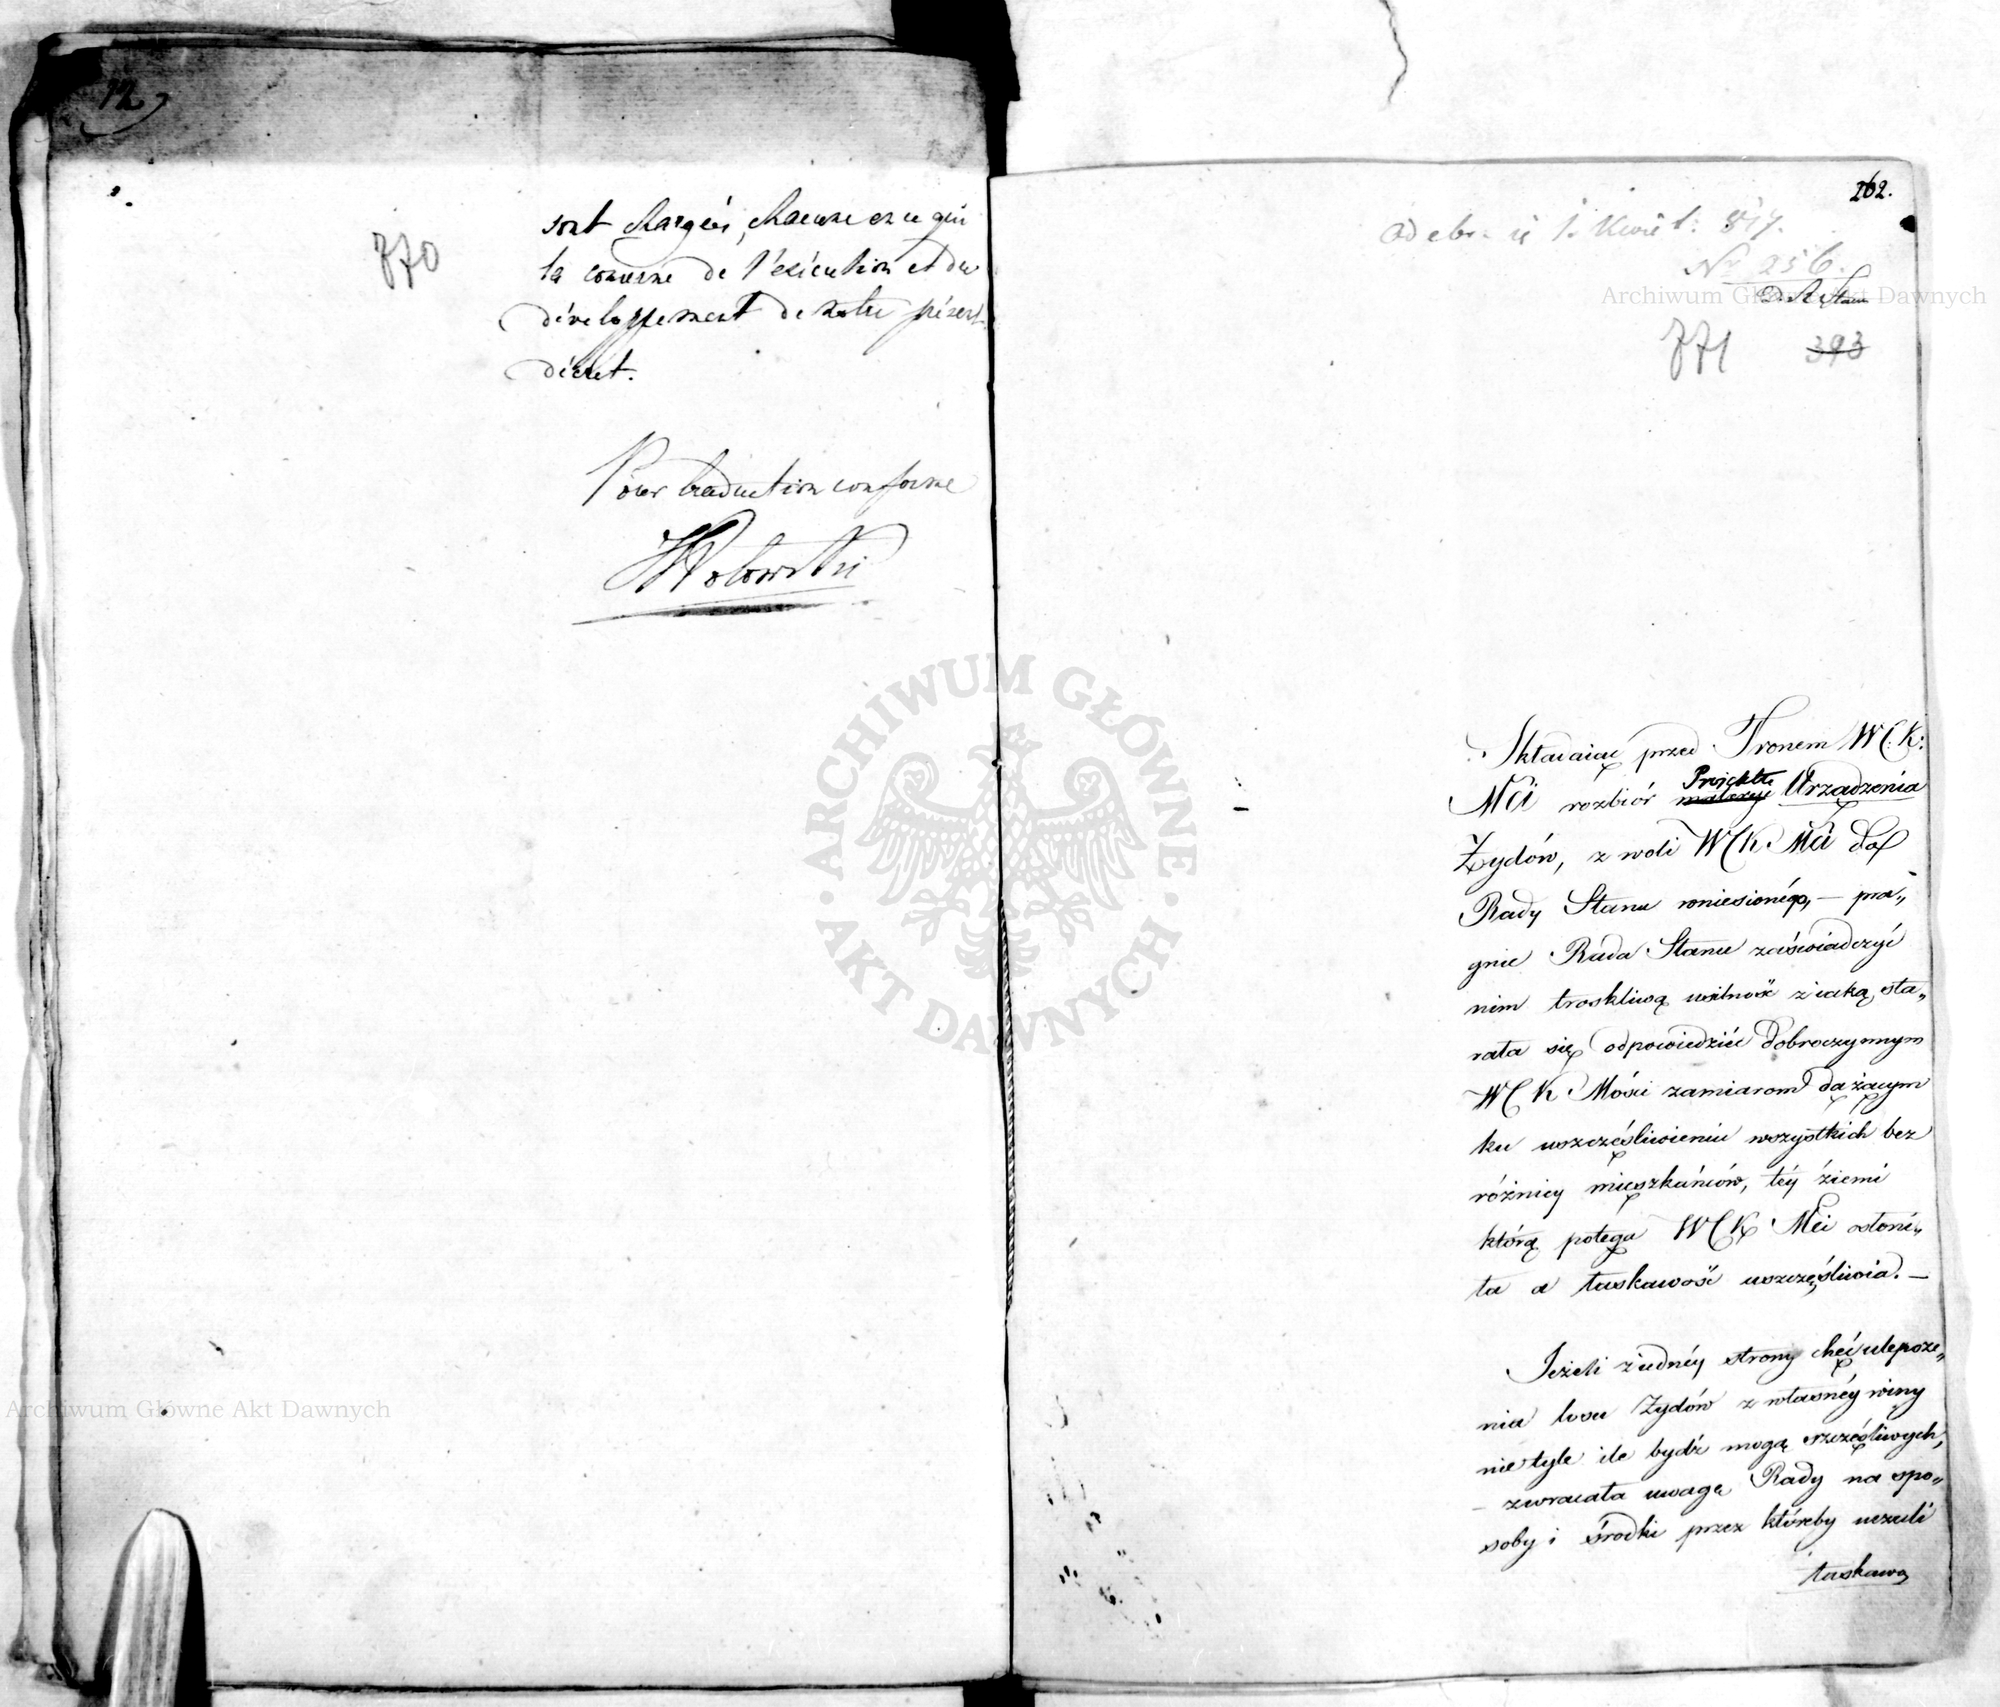 12
370
sont chargés, chacun en ce qui
le concerne de l'exécution et du
développement de notre présent
décret.
Pour traduction conforme
Wołowski
262.
Odebr. 1. Kwiet: 817.
No 256.
D. R. Stanu
371 393
Składaiąc przed Tronem W. C. K.
Mci rozbiór Projektu Urządzenia
Żydów, z woli W C K Mci do
Rady Stanu wniesionégo, — pra„
gnie Rada Stanu zaświadczyć
nim troskliwą usilność z iaką sta„
rała się odpowiedzieć dobroczynnym
W C K Mości zamiarom dążącym
ku uszczęśliwieniu wszystkich bez
różnicy mieszkańców, téy ziemi
którą potęga W C K Mci osłoni„
ła a łaskawość uszczęśliwia. —
Jeżeli z iednéy strony chęć ulepsze„
nia losu Żydów z własnéy winy
nie tyle ile bydź mogą szczęśliwych,
– zwracała uwagę Rady na spo„
soby i środki przez któreby uczuli
łaskawą
Archiwum Główne Akt Dawnych
Archiwum Główne Akt Dawnych
ARCHIWUM GŁÓWNE · AKT DAWNYCH ·